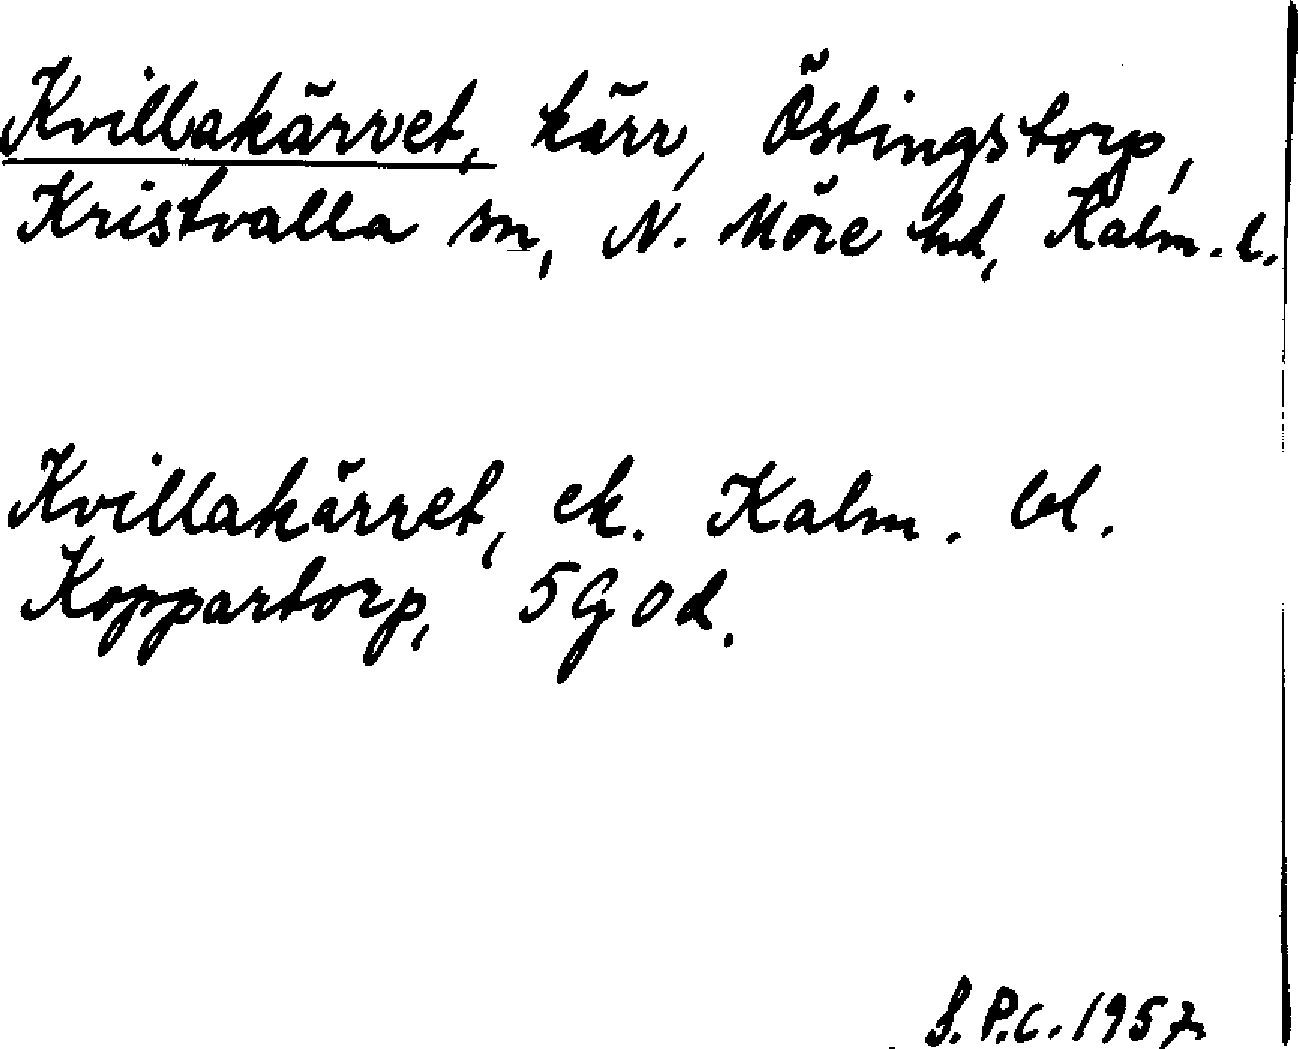 Kvillakärret, kärr, Östingstorp,
Kristvalla sn, N. Möre hd, Kalm. l.
Kvillakärret, ek. Kalm. bl.
Koppartorp, 5G0d.
S.P.C. 1957